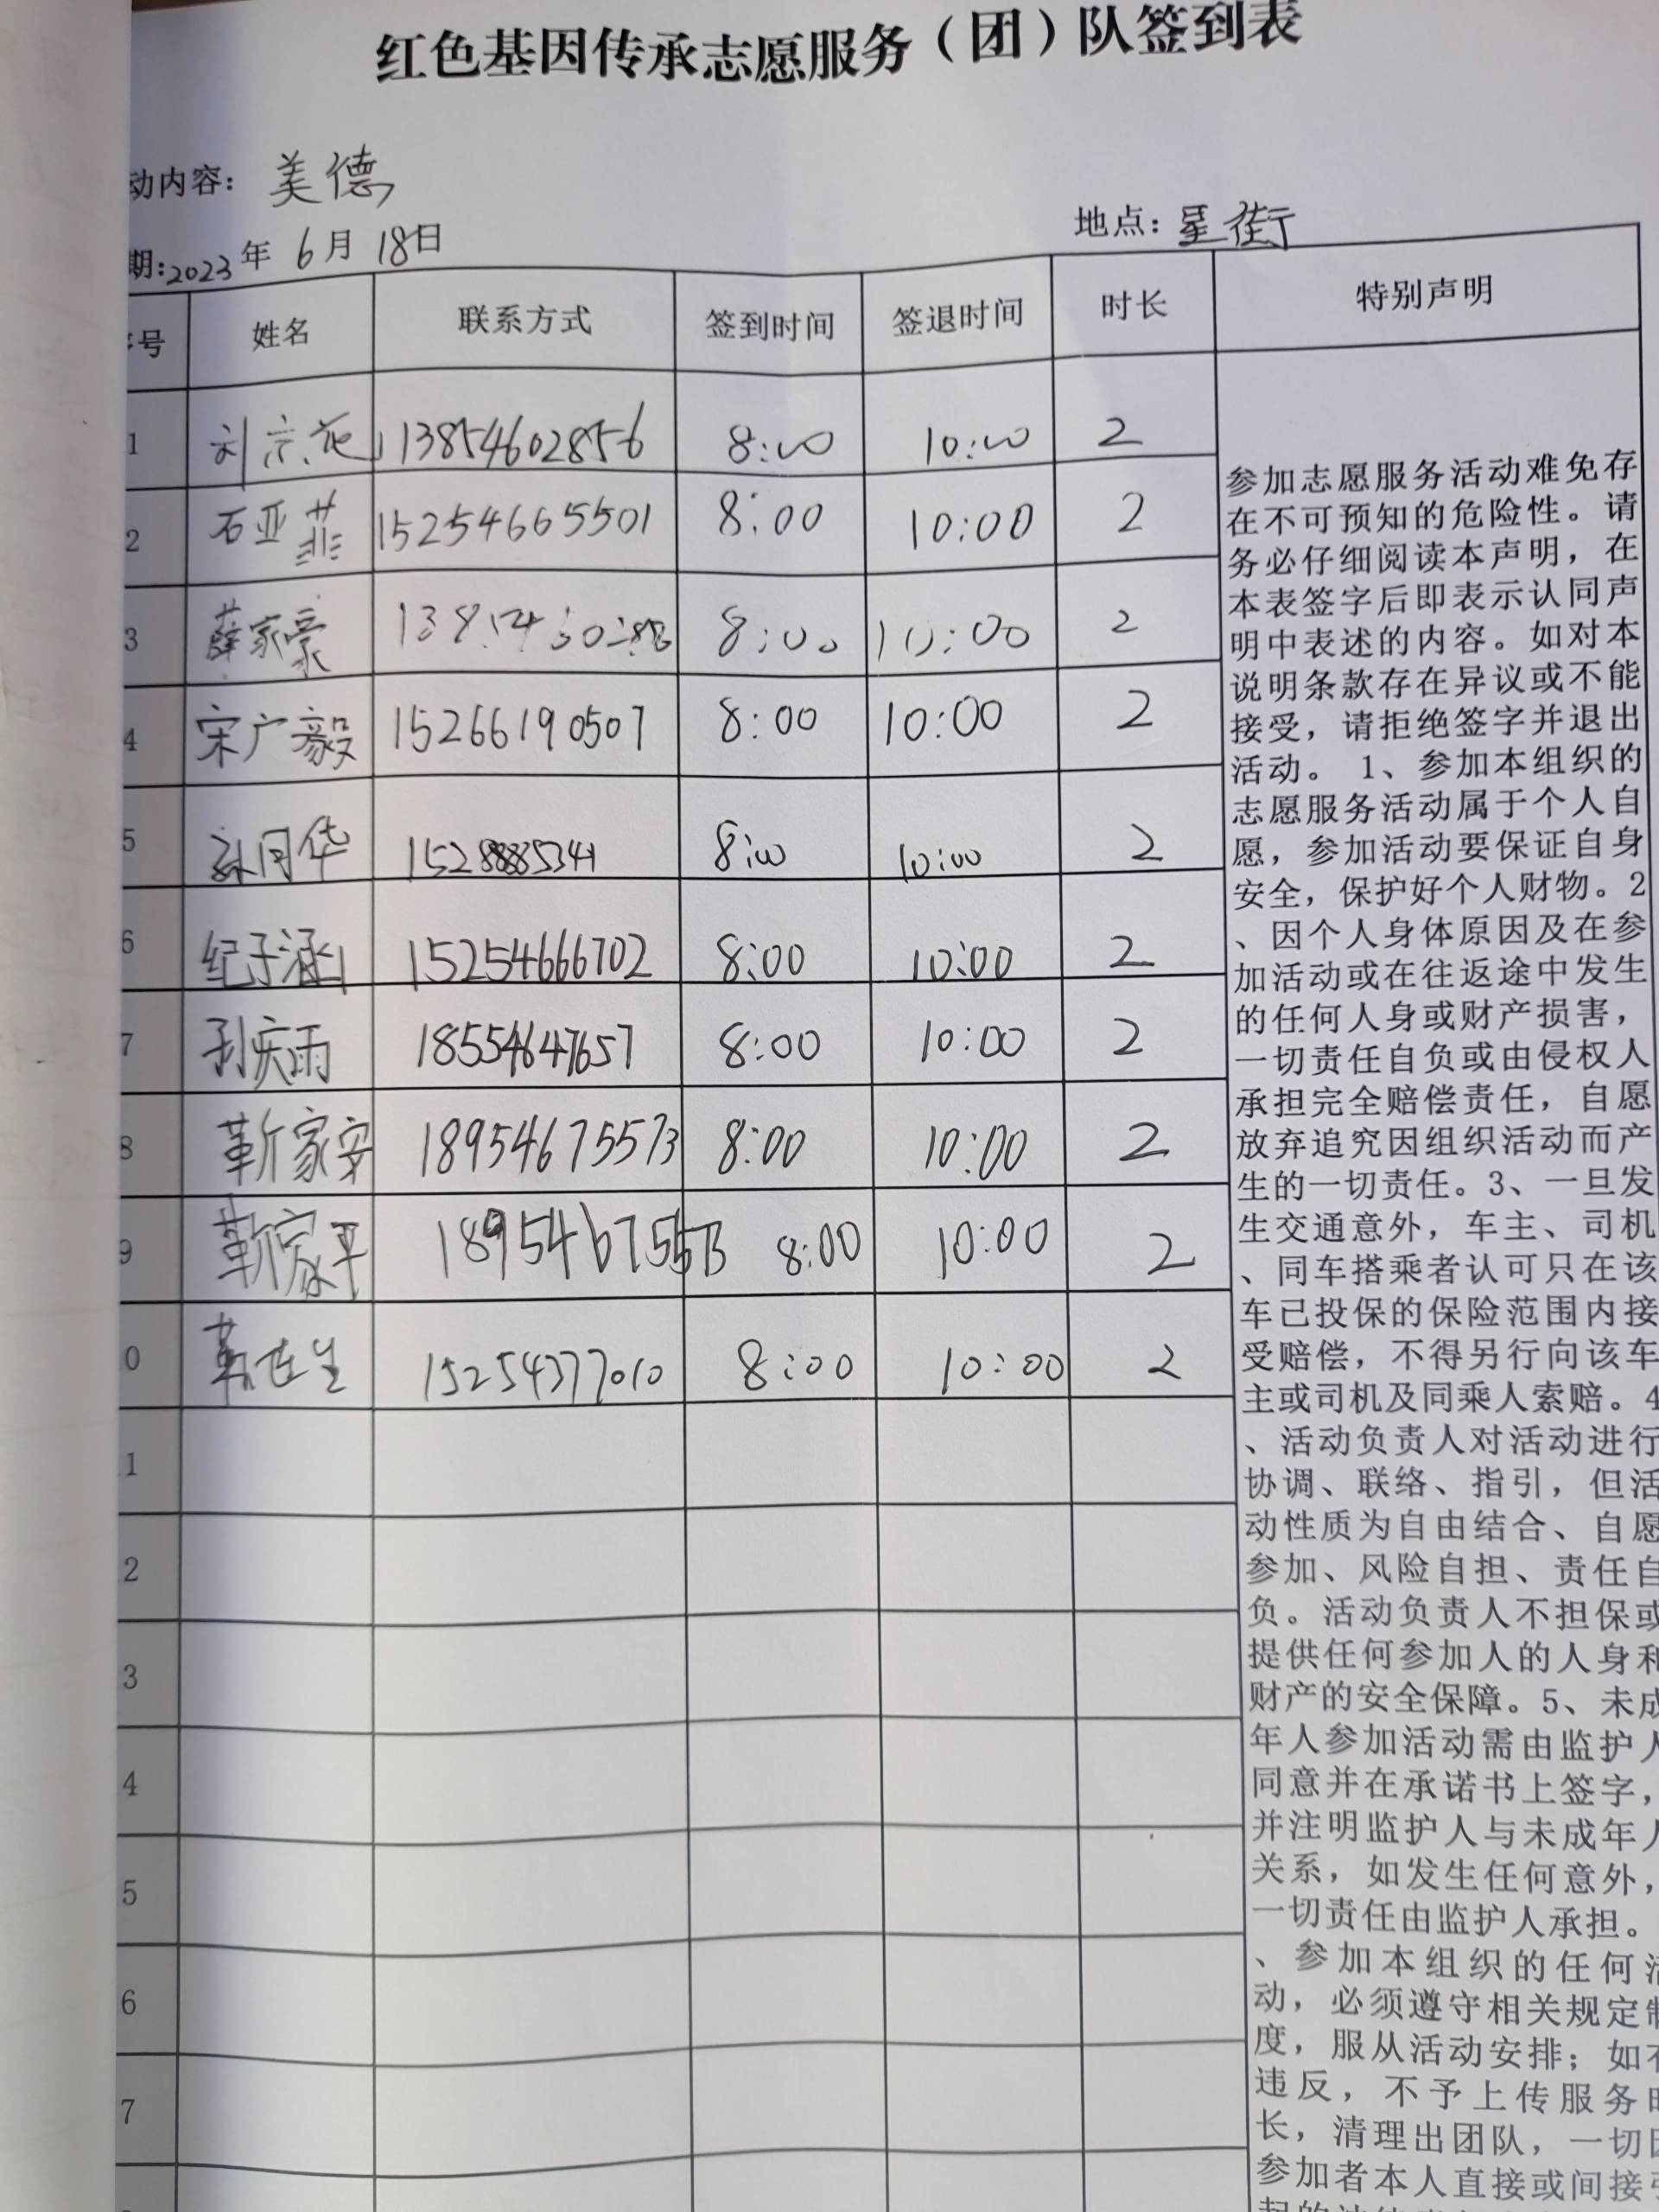 红色基因传承志愿服务（团）队签到表
动内容：美德
地点：星街
期：2023年6月18日
号 姓名 联系方式 签到时间 签退时间 时长 特别声明
1 13854602856 8:00 10:00 2
2 石亚菲 15254665501 8:00 10:00 2
3 薛家豪 8:00 10:00 2
4 宋广毅 15266190507 8:00 10:00 2
5 孙同华 8:00 10:00 2
6 纪子涵 15254666702 8:00 10:00 2
7 庆雨 18554647657 8:00 10:00 2
8 靳家安 18954675573 8:00 10:00 2
9 靳家平 8:00 10:00 2
0 15254377010 8:00 10:00 2
1
2
3
4
5
6
7
参加志愿服务活动难免存
在不可预知的危险性。请
务必仔细阅读本声明，在
本表签字后即表示认同声
明中表述的内容。如对本
说明条款存在异议或不能
接受，请拒绝签字并退出
活动。 1、参加本组织的
志愿服务活动属于个人自
愿，参加活动要保证自身
安全，保护好个人财物。2
、因个人身体原因及在参
加活动或在往返途中发生
的任何人身或财产损害，
一切责任自负或由侵权人
承担完全赔偿责任，自愿
放弃追究因组织活动而产
生的一切责任。3、一旦发
生交通意外，车主、司机
、同车搭乘者认可只在该
车已投保的保险范围内接
受赔偿，不得另行向该车
主或司机及同乘人索赔。4
、活动负责人对活动进行
协调、联络、指引，但活
动性质为自由结合、自愿
参加、风险自担、责任自
负。活动负责人不担保或
提供任何参加人的人身和
财产的安全保障。5、未成
年人参加活动需由监护人
同意并在承诺书上签字，
并注明监护人与未成年人
关系，如发生任何意外，
一切责任由监护人承担。
、参加本组织的任何活
动，必须遵守相关规定制
度，服从活动安排；如有
违反，不予上传服务时
长，清理出团队，一切因
参加者本人直接或间接引